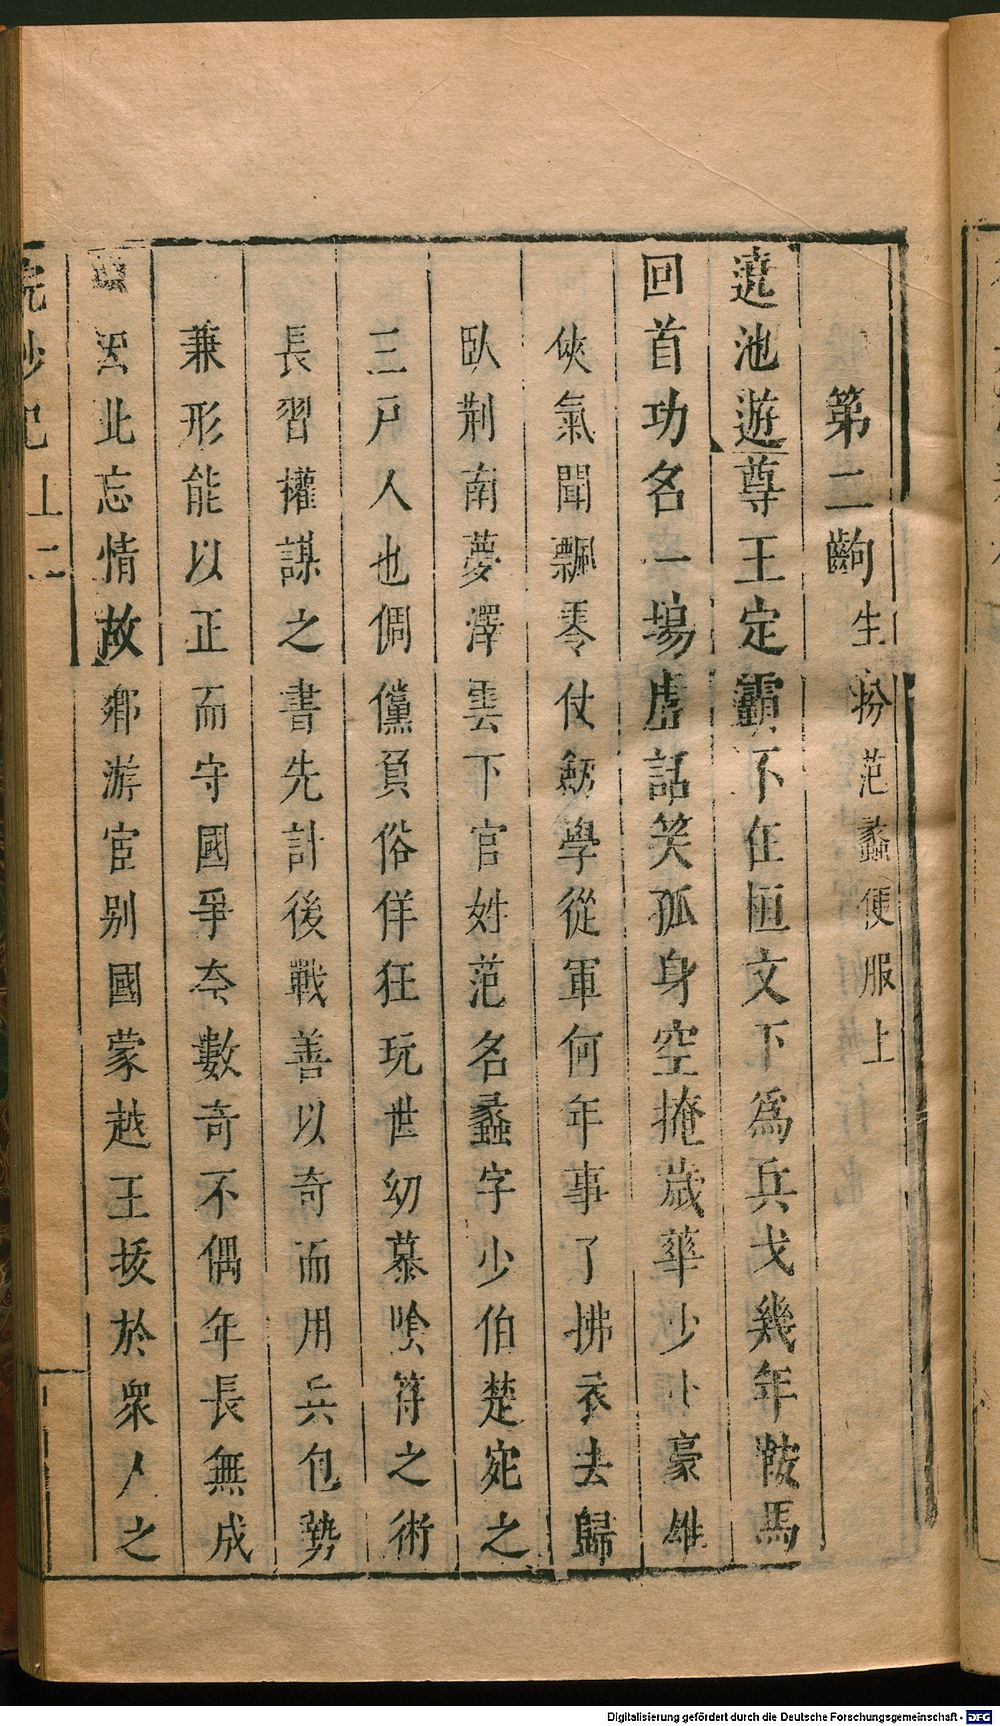 第二齣 生扮范蠡便服上
遶池遊尊王定霸不在桓文下爲兵戈幾年鞍馬
回首功名一場虛話笑孤身空掩歲華少小豪雄
俠氣聞飄零仗劒學從軍何年事了拂衣去歸
臥荆南夢澤雲下官姓范名蠡字少伯楚宛之
三戸人也倜儻負俗佯狂玩世幼慕陰符之術
長習權謀之書先計後戰善以奇而用兵包勢
兼形能以正而守國爭奈數奇不偶年長無成
因此忘情故鄉游宦别國蒙越王拔於衆人之
浣紗記 上 二
Digitalisierung gefördert durch die Deutsche Forschungsgemeinschaft - DFG